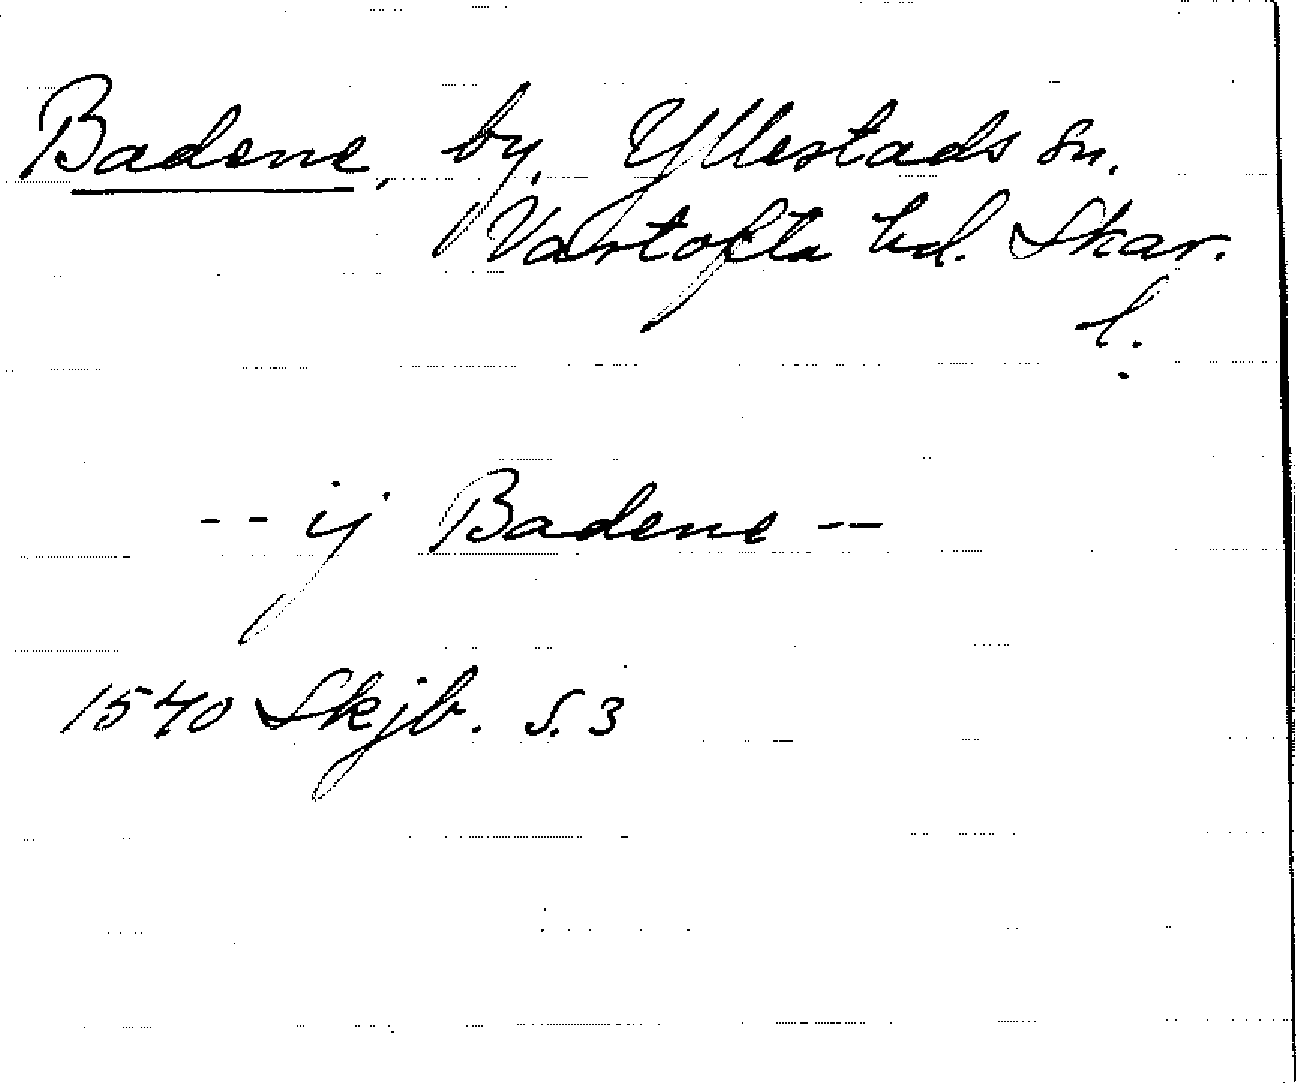 Badene, by, Yllestads sn,
Vartofta hd. Skar.
l.
-- ij Badene --
1540 Skjb. S. 3